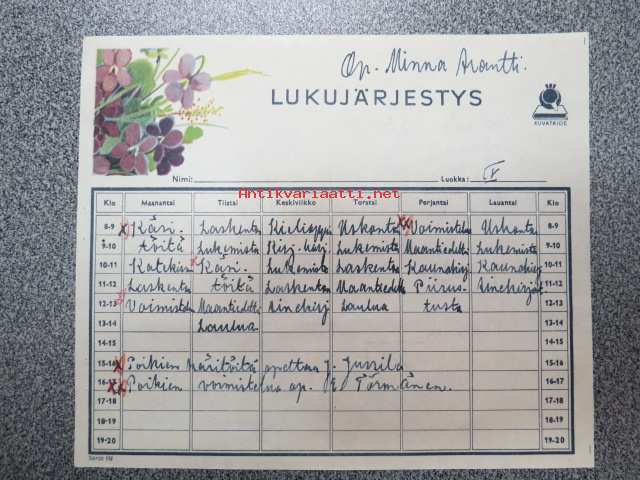 Op. Minna Arantti.
LUKUJÄRJESTYS
KUVATAIDE
Nimi: Luokka: IV
Antikvariaatti.net
Klo Maanantai Tiistai Keskiviikko Torstai Perjantai Lauantai Klo
8-9 x Käsi- Laskento Uskonto xx Voimistelu Uskonto 8-9
9-10 töitä Lukemista Kirj. harj. Lukemista Maantiedettä Lukemista 9-10
10-11 Katekis. x Käsi- Lukemista Laskentoa Kaunokirj. Kaunokirj. 10-11
11-12 Laskentoa töitä Laskentoa Maantiedettä Piirus- Ainekirjoit. 11-12
12-13 Voimistelua Maantiedettä Ainekirj. Laulua tusta 12-13
13-14 Laulua 13-14
14-15 14-15
15-16 x Poikien käsitöitä opettaa J. Jussila 15-16
16-17 xx Poikien voimistelua op. E. Törmänen. 16-17
17-18 17-18
18-19 18-19
19-20 19-20